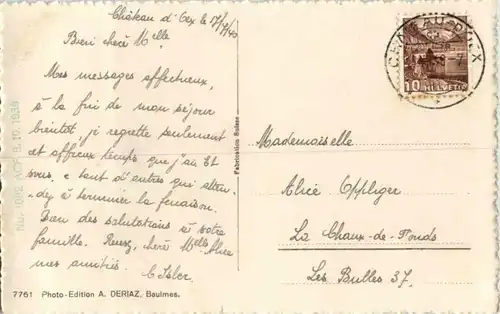 Château d'Oex le 17/7/40
Bien chère Melle
Mes messages affectueux,
à la fin de mon séjour
bientôt, je regrette seulement
cet affreux temps que j'ai et
vous, et tant d'autres qui atten-
dez à terminer la fenaison.
Bien des salutations à votre
famille. Recev. chère Melle Alice
mes amitiés. C. Isler.
7761 Photo-Edition A. DERIAZ, Baulmes.
Fabrication Suisse
CHATEAU-D'OEX
10 HELVETIA
Mademoiselle
Alice Oppliger
La Chaux-de-Fonds
Les Bulles 37.